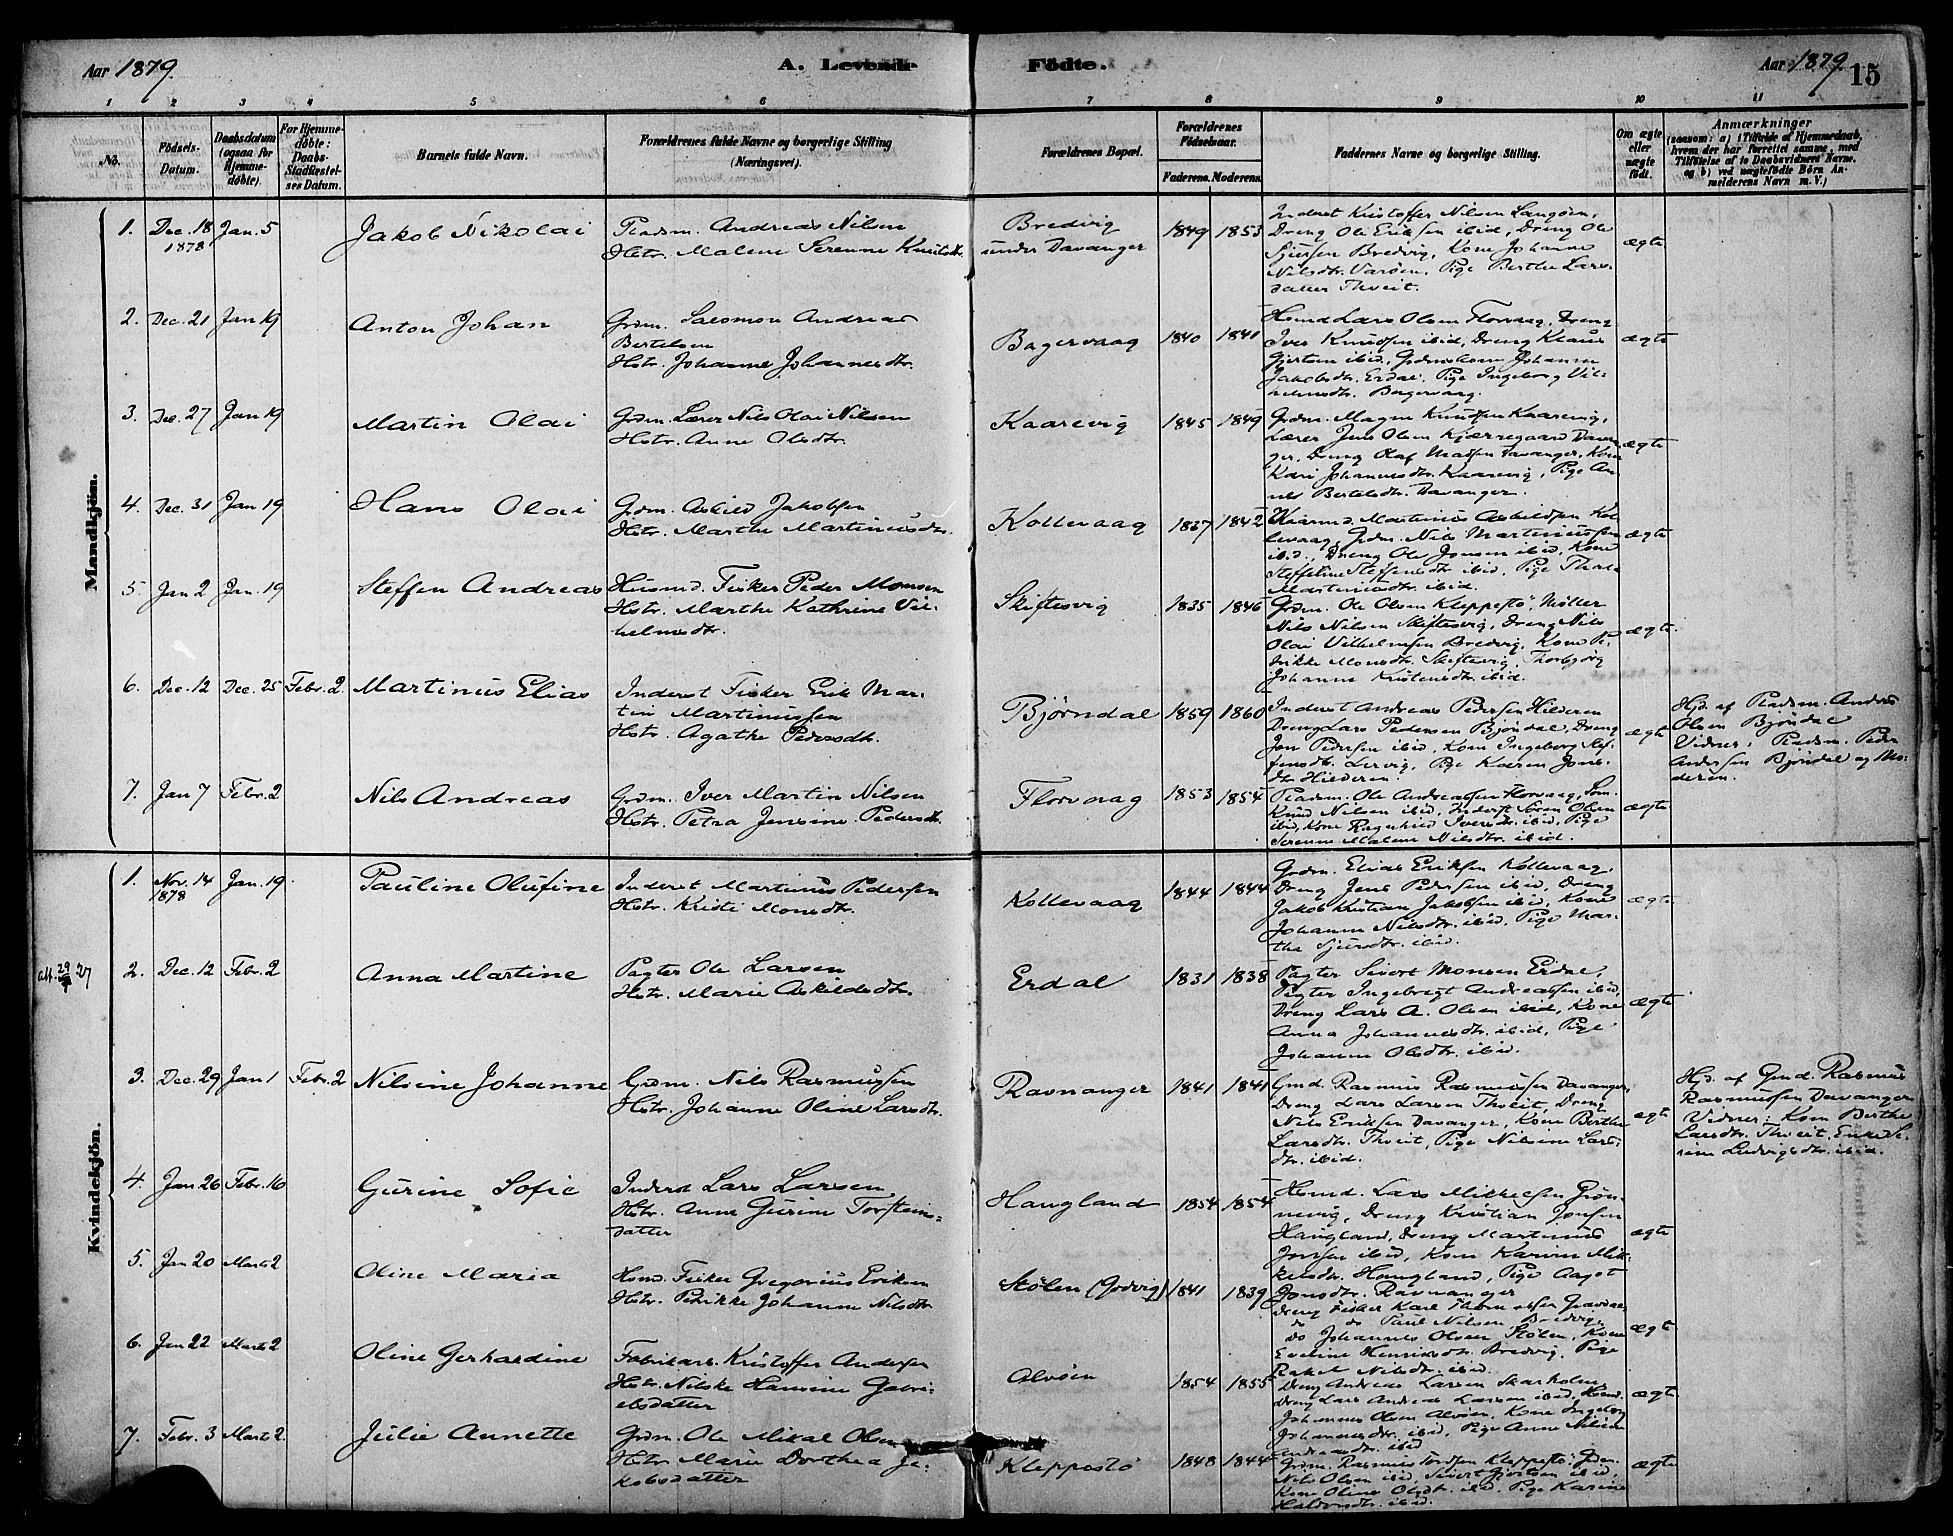 Aar 1879.
A. Levende Födte.
Aar 1879.
15
1 2 3 4 5 6 7 8 9 10 11
No.
Födsels-
Datum.
Daabsdatum
(ogsaa for
Hjemme-
döbte).
For Hjemme-
döbte:
Daabs-
Stadfæstel-
ses Datum.
Barnets fulde Navn.
Forældrenes fulde Navne og borgerlige Stilling
(Næringsvei).
Forældrenes Bopæl.
Forældrenes
Födselsaar.
Faderens. Moderens.
Faddernes Navne og borgerlige Stilling.
Om ægte
eller
uægte
födt.
Anmærkninger
(saasom: a) i Tilfælde af Hjemmedaab,
hvem der har forrettet samme, med
Tilföielse af to Daabsvidners Navne,
og b) ved uægtefödte Börn An-
melderens Navn m. V.)
Mandkjön.
1. Dec. 18 Jan. 5
1878
Jakob Nikolai
Pladsm. Andreas Nilsen
Hstr. Malene Serenne Knudsdtr.
Bredvig
under Davanger
1849 1853
Inderst Kristoffer Nilsen
Dreng Ole Eriksen ibid, Dreng Ole
Sjursen Bredvig, Kone Johanne
Nilsdtr. Varöen, Pige Berthe Lars-
datter Thveit.
ægte
2. Dec. 21 Jan 19
Anton Johan
Grdm. Salomon Andreas
Bertelsen
Hstr. Johanne Johannesdtr.
Bagervaag
1840 1841
Husmd Lars Olsen Florvaag, Dreng
Iver Knudsen ibid, Dreng Klaus
Gjertsen ibid, Johanne
Jakobsdtr. Erdal, Pige Ingeborg Vil-
helmsdtr. Bagervaag.
ægte
3. Dec. 27 Jan 19
Martin Olai
Grdm. Lærer Nils Olai Nilsen
Hstr. Anne Olsdtr.
Kaarevig
1845 1849
Grdm. Magne Knudsen Kaarevig,
Lærer Jens Olsen Kjærregaard Davan-
ger, Dreng Olaf Madsen Davanger, Kone
Kari Johannesdtr. Kaarevig, Pige An-
ne Bertelsdtr. Davanger.
ægte
4. Dec. 31 Jan 19
Hans Olai
Grdm. Askild Jakobsen
Hstr. Marthe Martinusdtr.
Kollevaag
1837 1842
Martinus Askildsen Kol-
levaag, Grdm. Nils Martinussen
ibid., Dreng Ole Jonsen ibid, Kone
Steffeline Steffensdtr. ibid, Pige
Martinusdtr. ibid.
ægte
5. Jan 2 Jan. 19
Steffen Andreas
Husmd. Fisker Peder Monsen
Hstr. Marthe Kathrine Vil-
helmsdtr.
Skiftesvig
1835 1846
Grdm. Ole Olsen Kleppestö, Möller
Nils Nilsen Skiftesvig, Dreng Nils
Olai Vilhelmsen Bredvig, Kone Pe-
trikke Monsdtr. Skiftesvig, Thorbjörg
Johanne Kristensdtr. ibid.
ægte
6. Dec. 12 Dec. 25 Febr. 2
Martinus Elias
Inderst Fisker Erik Mar-
tin Martinussen
Hstr. Agathe Pedersdtr.
Björndal
1859 1860
Inderst Andreas Pedersen Hilderen
Dreng Lars Pedersen Björndal, Dreng
Jon Pedersen ibid, Kone Ingeborg Stef-
fensdtr. Lervig, Pige Karen Jons-
dtr Hilderen.
ægte
Hjd. af Pladsm. Anders
Olsen Björndal
Vidner: Pladsm. Peder
Andersen Björndal og Mo-
deren.
7. Jan 7 Febr. 2
Nils Andreas
Grdm. Iver Martin Nilsen
Hstr. Petra Jensine Pedersdtr.
Florvaag
1853 1854
Pladsm. Ole Andreassen Florvaag,
Knud Nilsen ibid, Inderst Sören Olsen
ibid, Kone Ragnhild Iversdtr. ibid, Pige
Serenne Malene Nilsdtr. ibid.
ægte
Kvindekjön.
1. Nov. 14 Jan. 19
1878
Pauline Olufine
Inderst Martinus Pedersen
Hstr. Kristi Monsdtr.
Kollevaag
1844 1844
Grdm. Elias Eriksen Kollevaag
Dreng Jens Pedersen ibid, Dreng
Jakob Kristian Jakobsen ibid, Kone
Johanne Nilsdtr. ibid, Pige Mar-
tha Sjursdtr. ibid.
ægte
att. 29/7 27
2. Dec. 12 Febr. 2
Anna Martine
Pagter Ole Larsen
Hstr. Marie Askildsdtr.
Erdal
1831 1838
Pagter Sivert Monsen Erdal,
Pagter Ingebrigt Andreassen ibid,
Dreng Lars A. Olsen ibid, Kone
Anna Johannesdtr. ibid, Pige
Johanne Olsdtr. ibid.
ægte
3. Dec. 29 Jan 1 Febr. 2
Nilsine Johanne
Grdm. Nils Rasmussen
Hstr. Johanne Oline Larsdtr.
Ravnanger
1841 1841
Gmd. Rasmus Rasmussen Davanger,
Dreng Lars Larsen Thveit, Dreng
Nils Eriksen Davanger, Kone Berthe
Larsdtr. Thveit, Pige Nilsine Lars-
dtr. ibid.
ægte
Hjd. af Gmd. Rasmus
Rasmussen Davanger
Vidner: Kone Berthe
Larsdtr. Thveit, Enke Se-
rine Ludvigsdtr. ibid.
4. Jan. 26 Febr. 16
Gurine Sofie
Inderst Lars Larsen
Hstr. Anne Gurine Torsteins-
datter
Haugland
1854 1854
Husmd. Lars Mikkelsen Grön-
nevig, Dreng Kristian Jonsen
Haugland, Dreng Martinus
Jonsen ibid, Kone Karine Mik-
kelsdtr. Haugland, Pige Aagot
Jonsdtr. Ravnanger
ægte
5. Jan 20 Marts 2
Oline Maria
Husmd. Fisker Gregorius Eriksen
Hstr. Petrikke Johanne Nilsdtr
Stölen (Godvig)
1841 1839
Dreng Fisker Karl
do do Paul Nilsen, Bredvig,
do Johannes Olsen Stölen, Kone
Eveline Henriksdtr. Bredvig, Pige
Rakel Nilsdtr. ibid.
ægte
6. Jan 22 Marts 2
Oline Gerhardine
Fabrikarb. Kristoffer Andersen
Hstr. Nilske Hansine Gabri-
elsdatter
Alvöen
1854 1855
Dreng Andreas Larsen Skarholmen
Dreng Lars Andreas Larsen ibid, Husmd.
Johannes Olsen Alvöen, Kone Ingeborg
Johannesdtr. ibid, Pige Anne Nilsine
Andreasdtr. ibid
ægte
7. Febr. 3 Marts 2.
Julie Annette
Grdm. Ole Mikal Olsen
Hstr. Marie Dorthea Ja-
kobsdatter
Kleppestö
1848 1844
Grdm. Rasmus Kleppestö, Grdm.
Nils Olsen ibid, Sivert Gjertsen ibid,
Kone Oline Olsdtr. ibid, Pige Karine
Haldorsdtr. ibid.
ægte